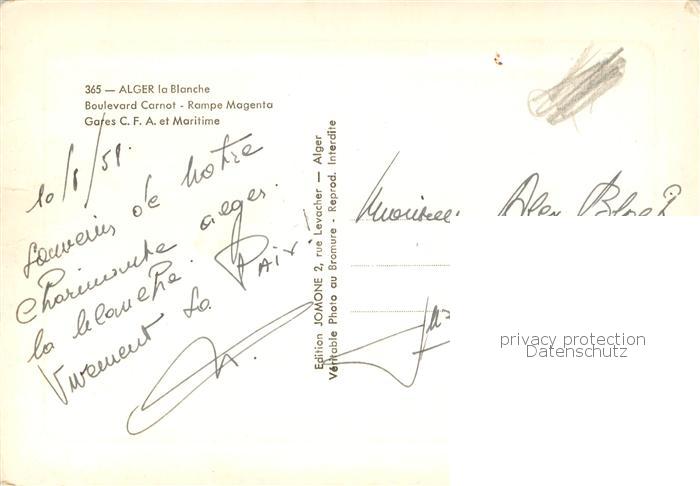 365 — ALGER la Blanche
Boulevard Carnot - Rampe Magenta
Gares C. F. A. et Maritime
10/1/59.
Souvenirs de Notre
Charmante alger.
la blanche.
Vivement la Paix!
Edition JOMONE 2, rue Levacher — Alger
Véritable Photo au Bromure - Reprod. Interdite
Monsieur Alex
privacy protection
Datenschutz